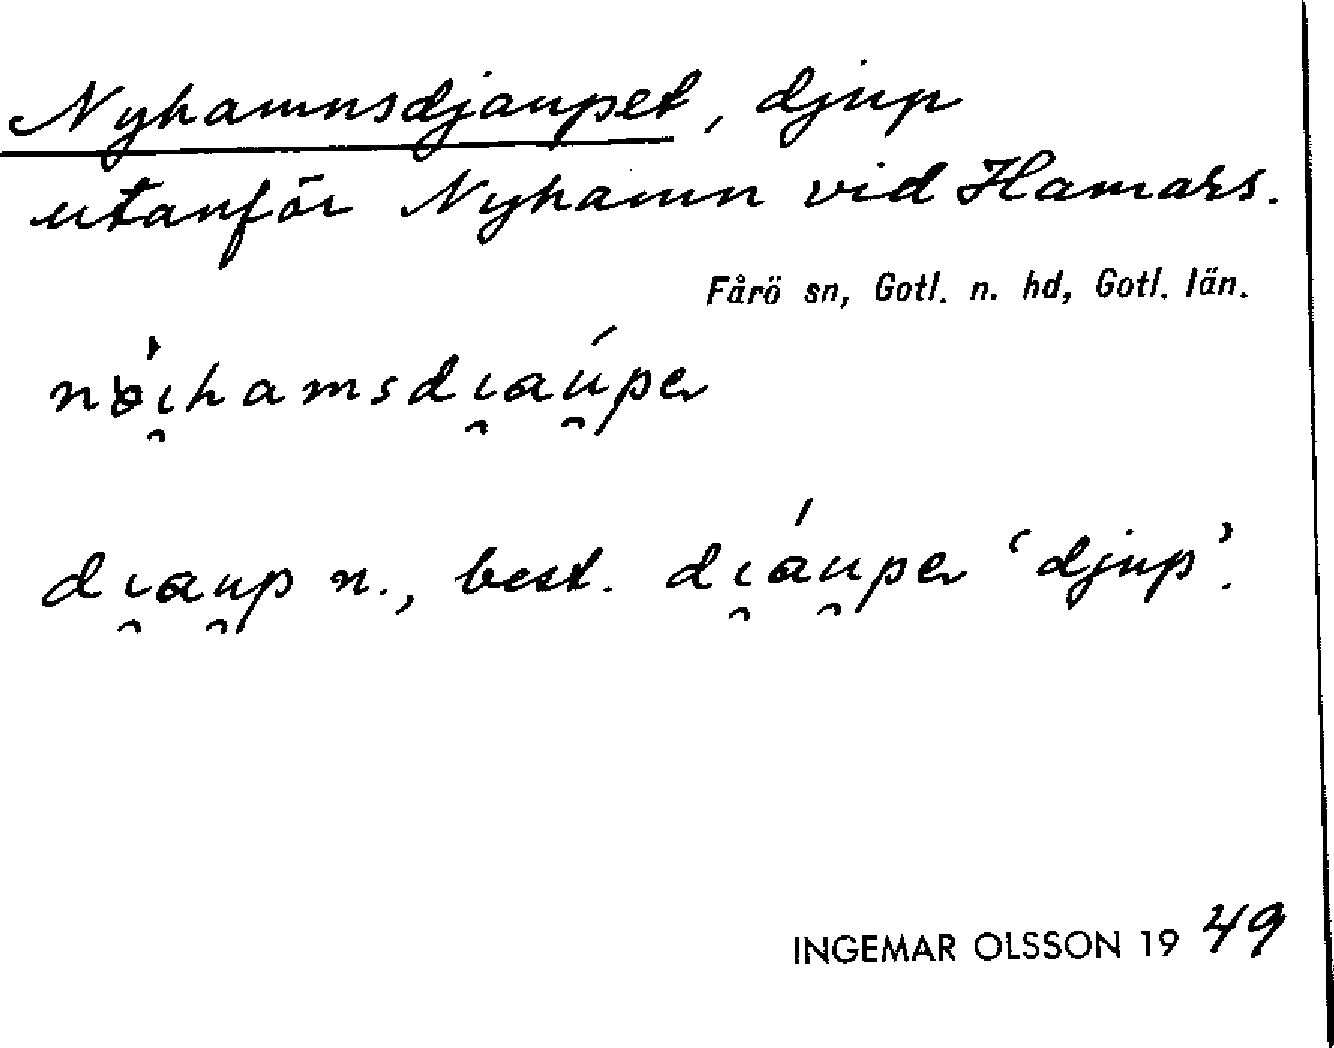 Nyhamnsdjaupet, djup
utanför Nyhamn vid Hamars.
Fårö sn, Gotl. n. hd, Gotl. län.
best. 'djup'.
INGEMAR OLSSON 19 49